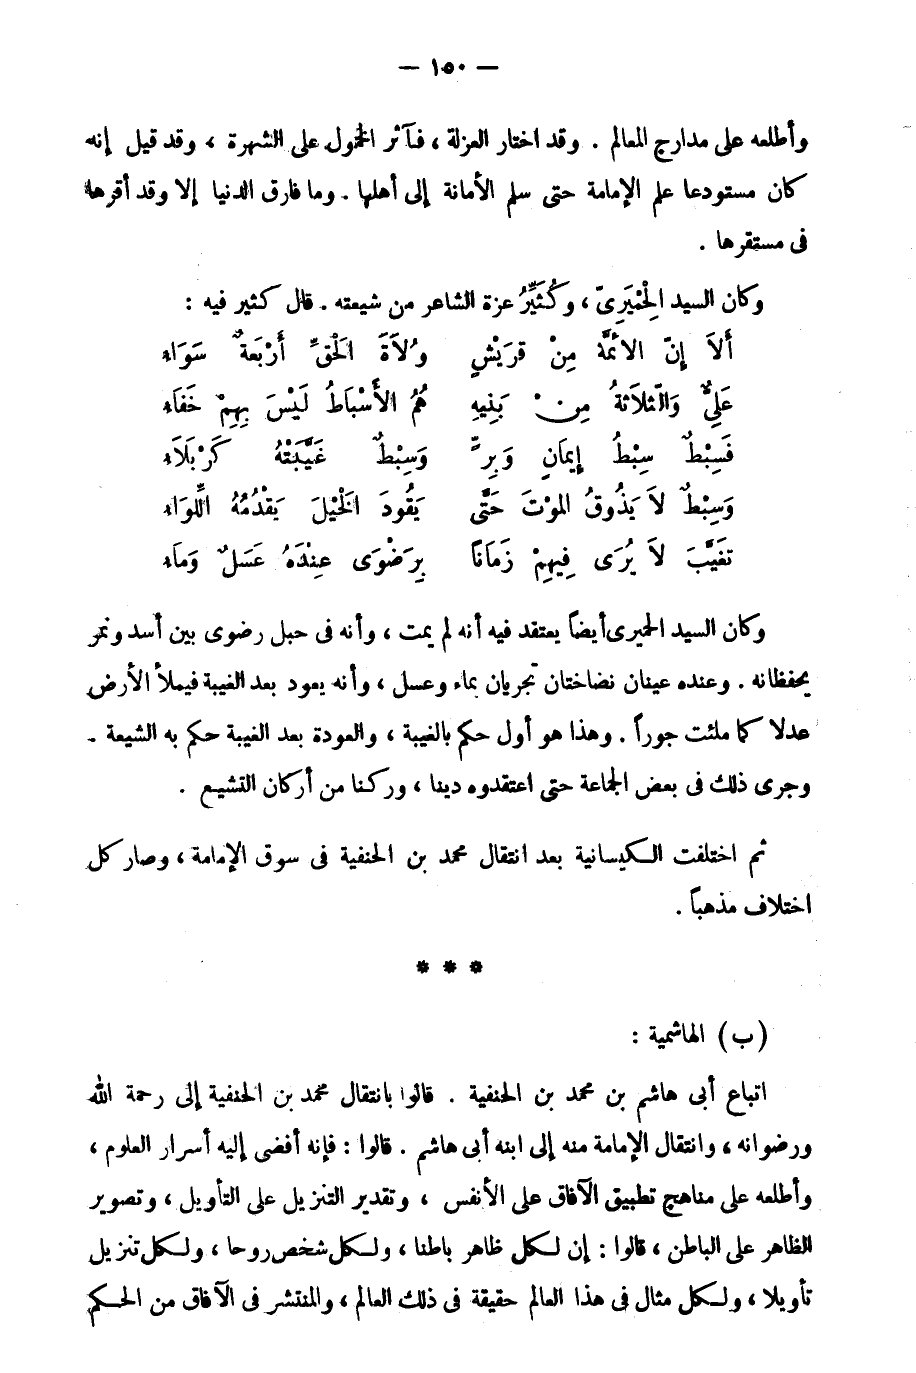 — ١٥٠ —
وأطلعه على مدارج المعالم . وقد اختار العزلة ، فآثر الخمول على الشهرة ، وقد قيل إنه
كان مستودعا علم الإمامة حتى سلم الأمانة إلى أهلها . وما فارق الدنيا إلا وقد أقرها
فى مستقرها .
وكان السيد الحِمْيَرِىّ ، وكُثَيِّرُ عزة الشاعر من شيعته . قال كثير فيه :
أَلاَ إِنّ الأئمَّة مِنْ قرَيْشٍ وُلاَةَ الحَقِّ أَرْبَعةٌ سَوَاءِ
عَلِيٌّ وَالثّلاَثةُ مِنْ بَنِيهِ هُمُ الأَسْبَاطُ لَيْسَ بِهِمْ خَفَاءِ
فَسِبْطٌ سِبْطُ إيمَانٍ وَبِرٍّ وَسِبْطٌ غَيَّبَتْهُ كَرْبَلَاءِ
وَسِبْطٌ لاَ يَذُوقُ الموْتَ حَتَّى يَقُودَ الخَيْلَ يَقدُمُهُ اللِّوَاءِ
تغَيَّبَ لاَ يُرَى فِيهِمْ زَمَانًا بِرَضْوَى عِنْدَهُ عَسَلٌ وَمَاءِ
وكان السيد الحميرى أيضاً يعتقد فيه أنه لم يمت ، وأنه فى حبل رضوى بين أسد ونمر
يحفظانه . وعنده عينان نضاختان تجريان بماء وعسل ، وأنه يعود بعد الغيبة فيملأ الأرض
عدلا كما ملئت جوراً . وهذا هو أول حكم بالغيبة ، والعودة بعد الغيبة حكم به الشيعة .
وجرى ذلك فى بعض الجماعة حتى اعتقدوه دينا ، وركنا من أركان التشيع .
ثم اختلفت الكيسانية بعد انتقال محمد بن الحنفية فى سوق الإمامة ، وصار كل
اختلاف مذهباً .
* * *
(ب) الهاشمية :
اتباع أبى هاشم بن محمد بن الحنفية . قالوا بانتقال محمد بن الحنفية إلى رحمة الله
ورضوانه ، وانتقال الإمامة منه إلى ابنه أبى هاشم . قالوا : فإنه أفضى إليه أسرار العلوم ،
وأطلعه على مناهج تطبيق الآفاق على الأنفس ، وتقدير التنزيل على التأويل ، وتصوير
الظاهر على الباطن ، قالوا : إن لكل ظاهر باطنا ، ولكل شخص روحا ، ولكل تنزيل
تأويلا ، ولكل مثال فى هذا العالم حقيقة فى ذلك العالم ، والمنتشر فى الآفاق من الحكم